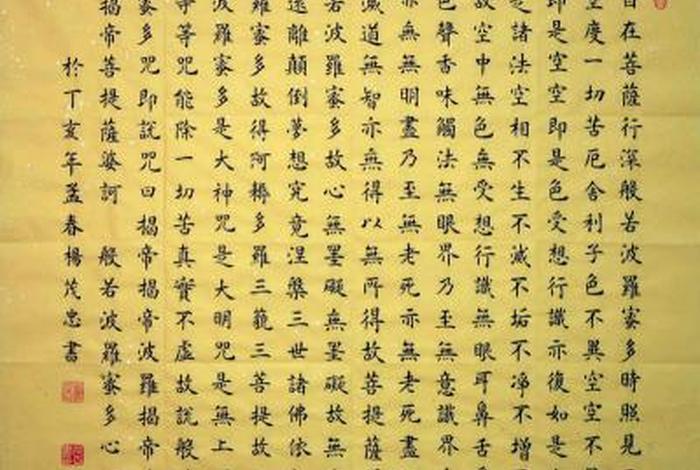 自在菩薩行深般若波羅蜜多時照見
空度一切苦厄舍利子色不異空空不
即是空空即是色受想行識亦復如是
是諸法空相不生不滅不垢不淨不增
故空中無色無受想行識無眼耳鼻舌
色聲香味觸法無眼界乃至無意識界
亦無無明盡乃至無老死亦無老死盡
滅道無智亦無得以無所得故菩提薩
若波羅蜜多故心無罣礙無罣礙故無
遠離顛倒夢想究竟涅槃三世諸佛依
羅蜜多故得阿耨多羅三藐三菩提故
波羅蜜多是大神咒是大明咒是無上
等等咒能除一切苦真實不虛故說般
蜜多咒即說咒曰揭帝揭帝波羅揭帝
揭帝菩提薩婆訶 般若波羅蜜多心
於丁亥年孟春楊茂忠書